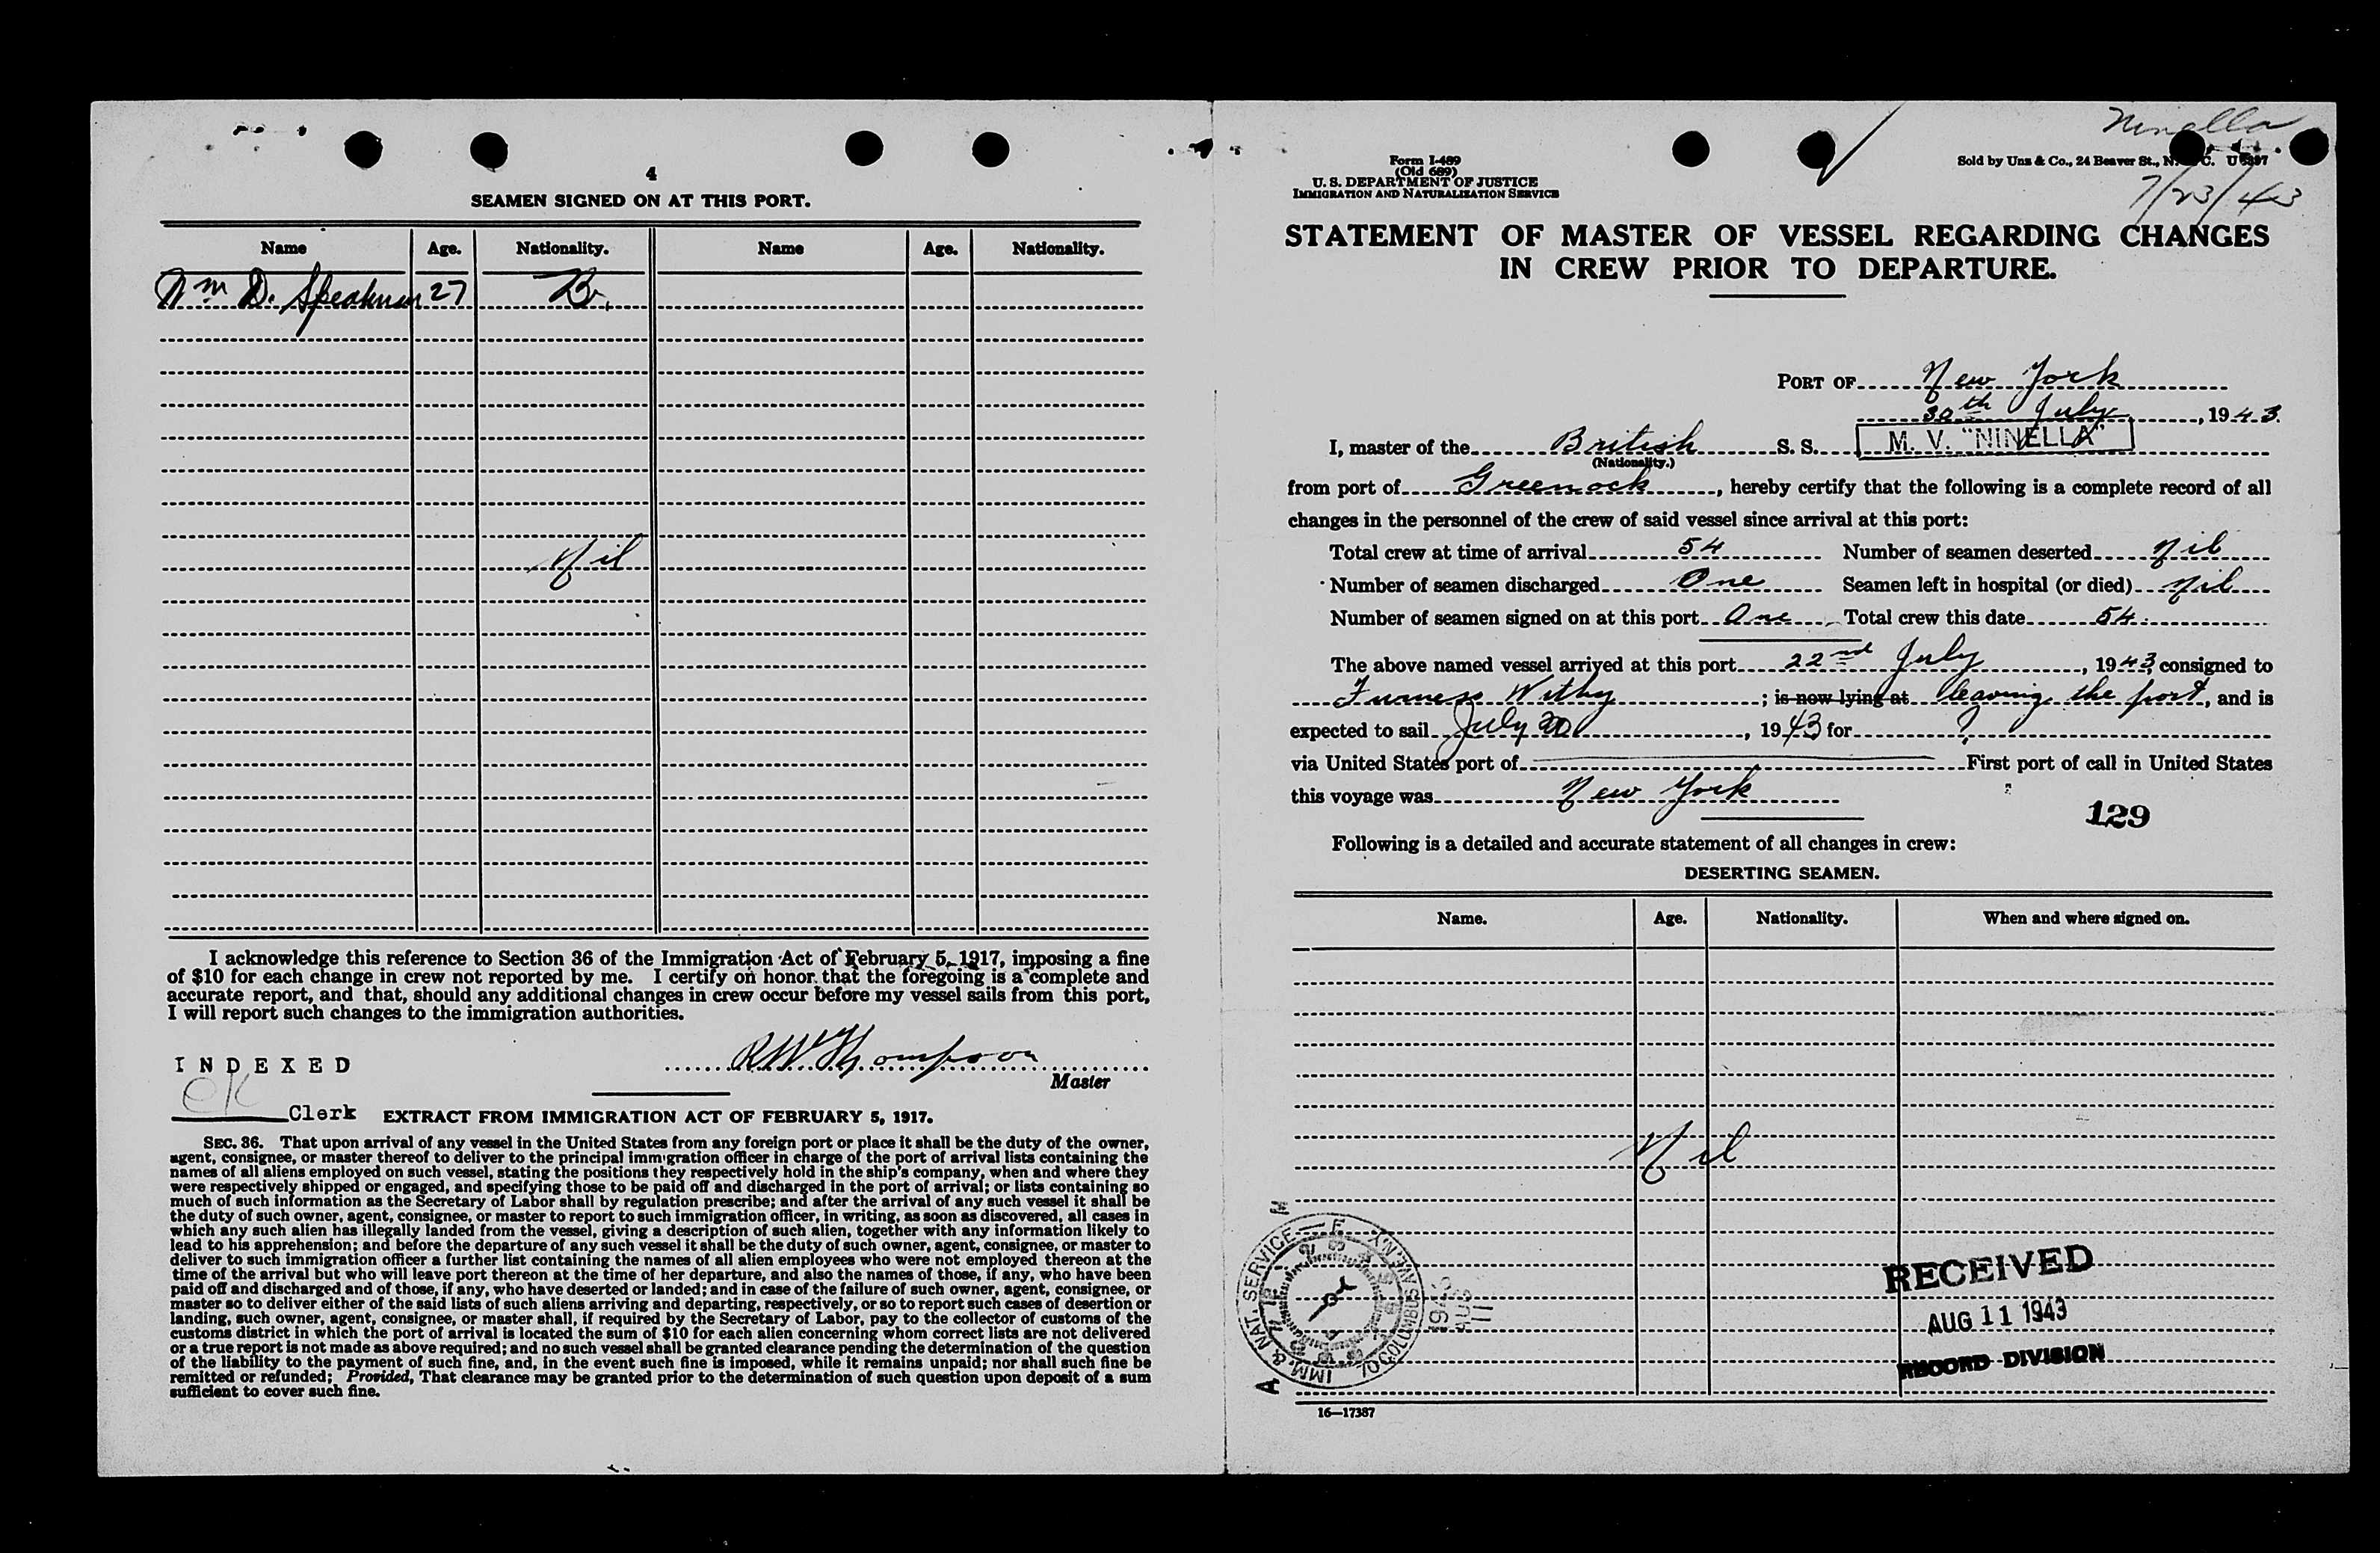 4
SEAMEN SIGNED ON AT THIS PORT.
Name Age. Nationality. Name Age. Nationality.
Wm D. Speakman 27 Br.
Nil
I acknowledge this reference to Section 36 of the Immigration Act of February 5, 1917, imposing a fine
of $10 for each change in crew not reported by me. I certify on honor that the foregoing is a complete and
accurate report, and that, should any additional changes in crew occur before my vessel sails from this port,
I will report such changes to the immigration authorities.
INDEXED
RW Thompson
Master
EK
Clerk EXTRACT FROM IMMIGRATION ACT OF FEBRUARY 5, 1917.
SEC. 36. That upon arrival of any vessel in the United States from any foreign port or place it shall be the duty of the owner,
agent, consignee, or master thereof to deliver to the principal immigration officer in charge of the port of arrival lists containing the
names of all aliens employed on such vessel, stating the positions they respectively hold in the ship's company, when and where they
were respectively shipped or engaged, and specifying those to be paid off and discharged in the port of arrival; or lists containing so
much of such information as the Secretary of Labor shall by regulation prescribe; and after the arrival of any such vessel it shall be
the duty of such owner, agent, consignee, or master to report to such immigration officer, in writing, as soon as discovered, all cases in
which any such alien has illegally landed from the vessel, giving a description of such alien, together with any information likely to
lead to his apprehension; and before the departure of any such vessel it shall be the duty of such owner, agent, consignee, or master to
deliver to such immigration officer a further list containing the names of all alien employees who were not employed thereon at the
time of the arrival but who will leave port thereon at the time of her departure, and also the names of those, if any, who have been
paid off and discharged and of those, if any, who have deserted or landed; and in case of the failure of such owner, agent, consignee, or
master so to deliver either of the said lists of such aliens arriving and departing, respectively, or so to report such cases of desertion or
landing, such owner, agent, consignee, or master shall, if required by the Secretary of Labor, pay to the collector of customs of the
customs district in which the port of arrival is located the sum of $10 for each alien concerning whom correct lists are not delivered
or a true report is not made as above required; and no such vessel shall be granted clearance pending the determination of the question
of the liability to the payment of such fine, and, in the event such fine is imposed, while it remains unpaid; nor shall such fine be
remitted or refunded; Provided, That clearance may be granted prior to the determination of such question upon deposit of a sum
sufficient to cover such fine.
Ninella
Form I-489
(Old 689)
U. S. DEPARTMENT OF JUSTICE
IMMIGRATION AND NATURALIZATION SERVICE
Sold by Unz & Co., 24 Beaver St., N. C. U
7/23/43
STATEMENT OF MASTER OF VESSEL REGARDING CHANGES
IN CREW PRIOR TO DEPARTURE.
PORT OF New York
30th July, 1943.
I, master of the British S. S. M. V. "NINELLA"
(Nationality.)
from port of Greenock, hereby certify that the following is a complete record of all
changes in the personnel of the crew of said vessel since arrival at this port:
Total crew at time of arrival 54 Number of seamen deserted Nil
Number of seamen discharged One Seamen left in hospital (or died) Nil
Number of seamen signed on at this port One Total crew this date 54.
The above named vessel arrived at this port 22nd July, 1943, consigned to
Furness Withy; is now lying at leaving the port, and is
expected to sail July 30, 1943 for ?
via United States port of First port of call in United States
this voyage was New York
129
Following is a detailed and accurate statement of all changes in crew:
DESERTING SEAMEN.
Name. Age. Nationality. When and where signed on.
Nil
IMM. & NAT. SERVICE 70 COLUMBUS AVE. N.Y.
A M
1943 AUG 11
RECEIVED
AUG 11 1943
RECORD DIVISION
16—17387